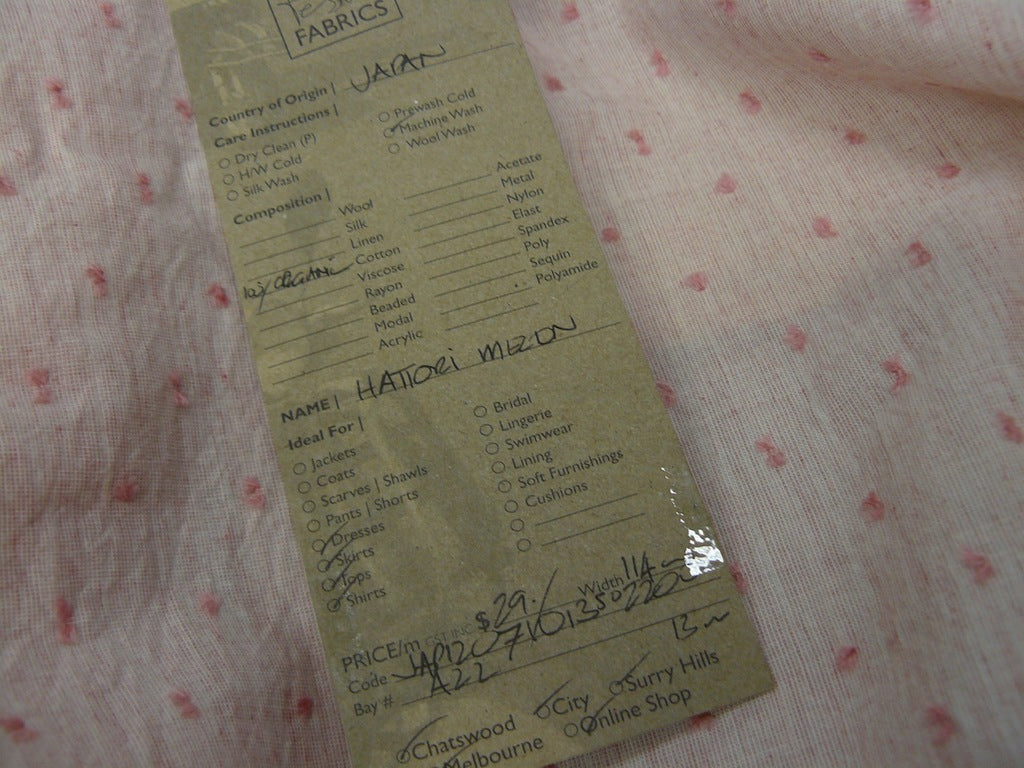 FABRICS
Country of Origin | JAPAN
Care Instructions |
Dry Clean (P)
H/W Cold
Silk Wash
Prewash Cold
Machine Wash
Wool Wash
Composition |
Wool
Silk
Linen
Cotton
Viscose
Rayon
Beaded
Modal
Acrylic
Acetate
Metal
Nylon
Elast
Spandex
Poly
Sequin
Polyamide
NAME | HATTORI MEZON
Ideal For |
Jackets
Coats
Scarves | Shawls
Pants | Shorts
Dresses
Skirts
Tops
Shirts
Bridal
Lingerie
Swimwear
Lining
Soft Furnishings
Cushions
PRICE/m GST INC $29./ Width 114
Code
Bay # A22
Chatswood City Surry Hills
Melbourne Online Shop